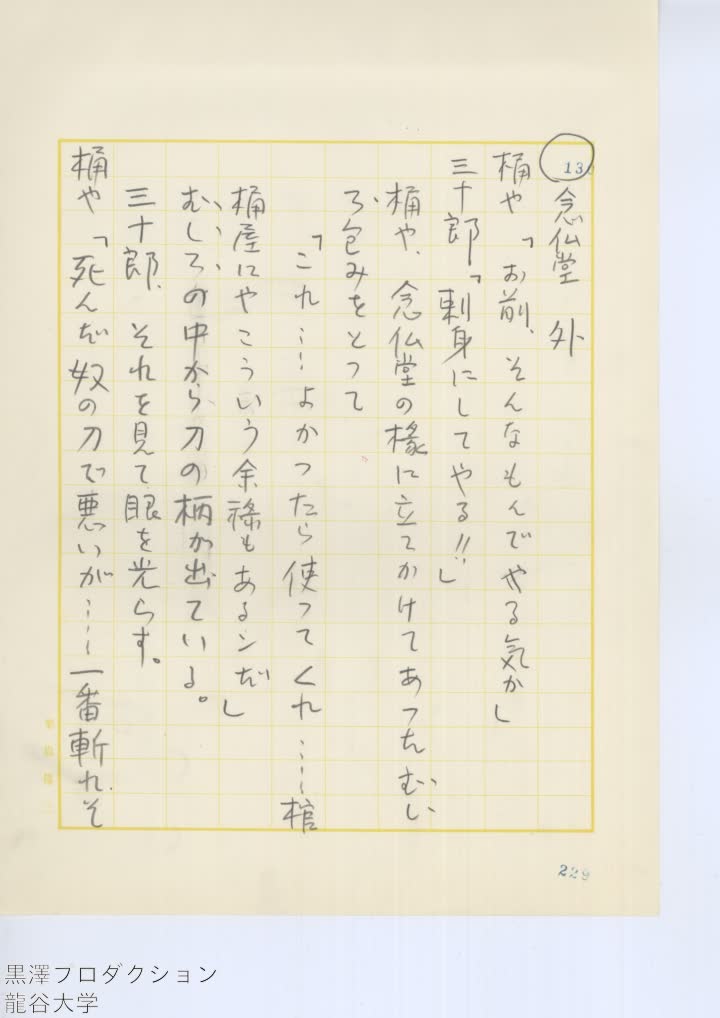 130
念仏堂　外
桶や「お前、そんなもんでやる気か」
三十郎「刺身にしてやる!!」
桶や、念仏堂の椽に立てかけてあつたむし
ろ包みをとつて
「これ……よかつたら使つてくれ……棺
桶屋にやこういう余祿もあるンだ」
むしろの中から刀の柄が出ている。
三十郎、それを見て眼を光らす。
桶や「死んだ奴の刀で悪いが……一番斬れそ
229
黒澤プロダクション
龍谷大学